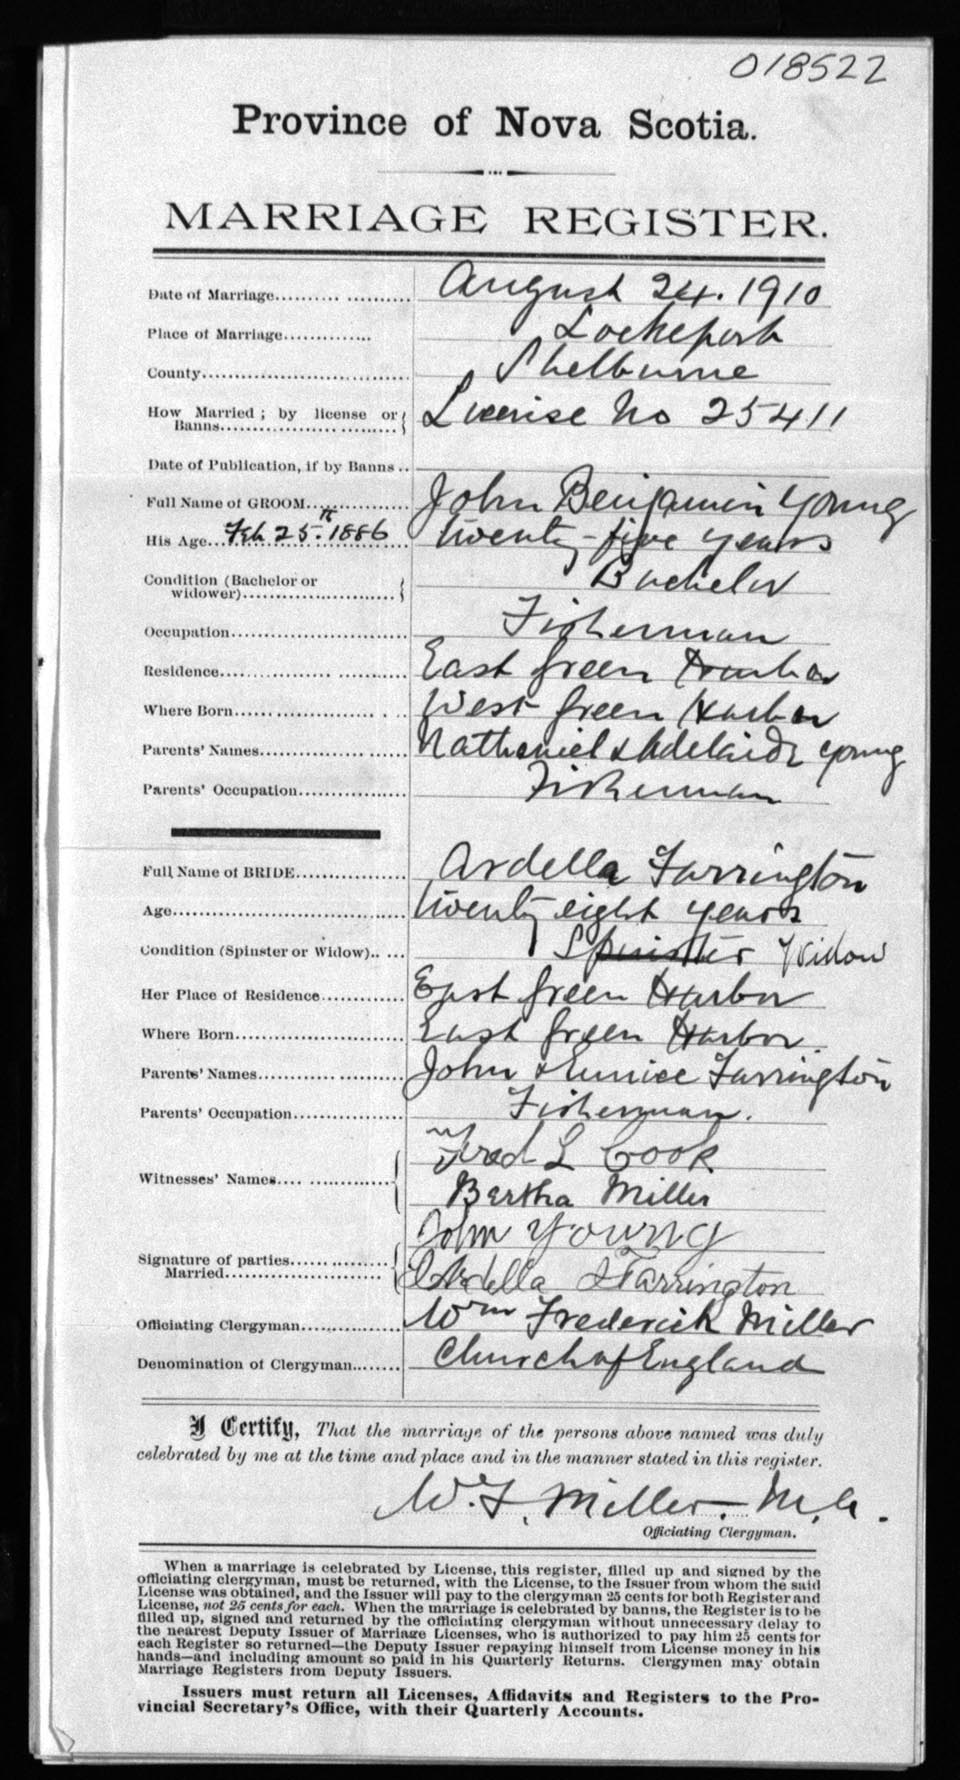 018522
Province of Nova Scotia.
MARRIAGE REGISTER.
Date of Marriage.......... ........... August 24. 1910
Place of Marriage............. Lockeport
County.................................... Shelburne
How Married ; by license or Banns.................... .......... License No 25411
Date of Publication, if by Banns ..
Full Name of GROOM.............. John Benjamin Young
His Age.. Feb 25th 1886 .... twenty-five years
Condition (Bachelor or widower).......................... Bachelor
Occupation............................... Fisherman
Residence.................. ............ East Green Harbor
Where Born.................... . . . West Green Harbor
Parents' Names.................. ...... Nathaniel & Adelaide Young
Parents' Occupation.................. Fisherman
Full Name of BRIDE.................. Ardella Farrington
Age......................................... twenty eight years
Condition (Spinster or Widow).. ... Spinster Widow
Her Place of Residence.............. East Green Harbor
Where Born............................. East Green Harbor.
Parents' Names............. ........... John & Eunice Farrington
Parents' Occupation................... Fisherman.
Witnesses' Names.... ............... Fred L Cook
Bertha Miller
Signature of parties Married.......................... John Young
Ardella Farrington
Officiating Clergyman................. Wm Frederick Miller
Denomination of Clergyman........ Church of England
I Certify, That the marriage of the persons above named was duly
celebrated by me at the time and place and in the manner stated in this register.
W. F. Miller. M.A.
Officiating Clergyman.
When a marriage is celebrated by License, this register, filled up and signed by the
officiating clergyman, must be returned, with the License, to the Issuer from whom the said
License was obtained, and the Issuer will pay to the clergyman 25 cents for both Register and
License, not 25 cents for each. When the marriage is celebrated by banns, the Register is to be
filled up, signed and returned by the officiating clergyman without unnecessary delay to
the nearest Deputy Issuer of Marriage Licenses, who is authorized to pay him 25 cents for
each Register so returned—the Deputy Issuer repaying himself from License money in his
hands—and including amount so paid in his Quarterly Returns. Clergymen may obtain
Marriage Registers from Deputy Issuers.
Issuers must return all Licenses, Affidavits and Registers to the Pro-
vincial Secretary's Office, with their Quarterly Accounts.